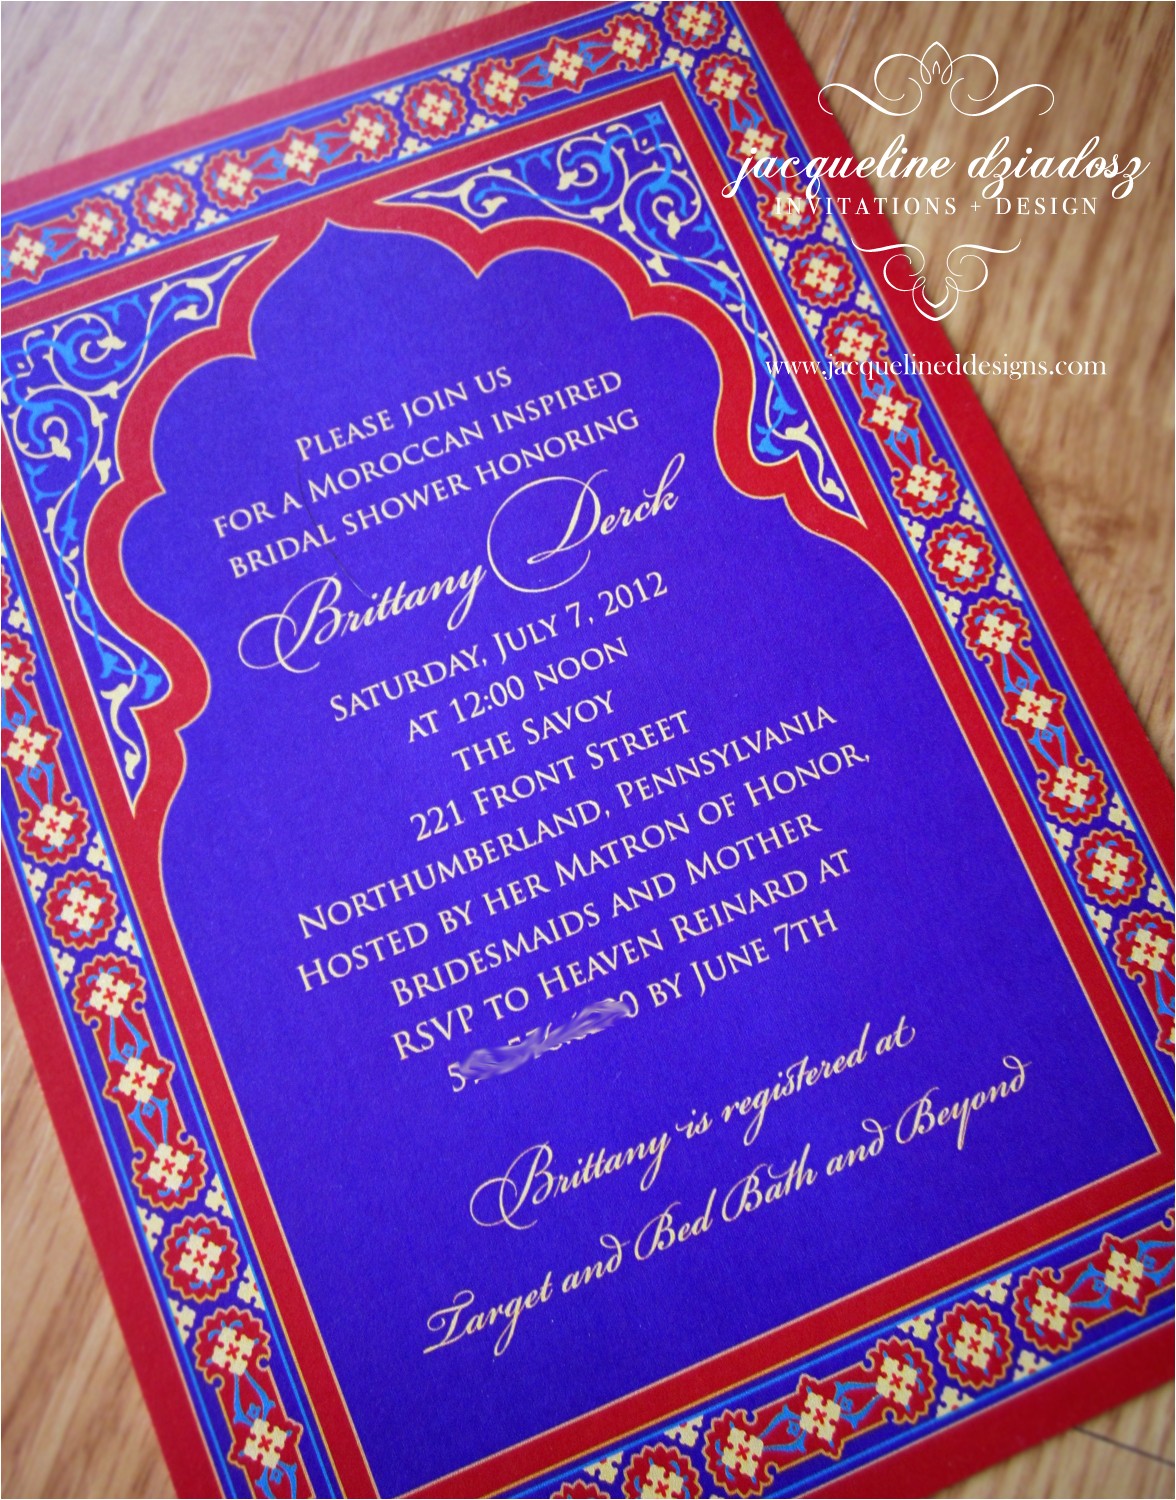 jacqueline dziadosz
INVITATIONS + DESIGN
www.jacquelineddesigns.com
PLEASE JOIN US
FOR A MOROCCAN INSPIRED
BRIDAL SHOWER HONORING
Brittany Derck
SATURDAY, JULY 7, 2012
AT 12:00 NOON
THE SAVOY
221 FRONT STREET
NORTHUMBERLAND, PENNSYLVANIA
HOSTED BY HER MATRON OF HONOR,
BRIDESMAIDS AND MOTHER
RSVP TO HEAVEN REINARD AT
BY JUNE 7TH
Brittany is registered at
Target and Bed Bath and Beyond